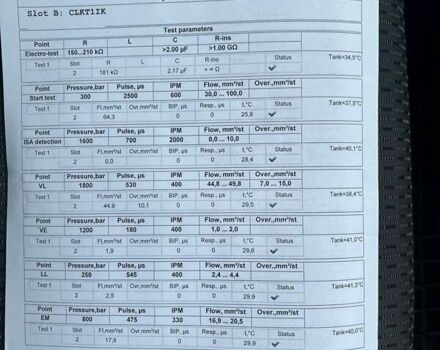 Slot B: CLKT1IK
Test parameters
Point R L C R-ins
Electro-test 150...210 kΩ >2.00 µF >1.00 GΩ
Test 1 Slot R L C R-ins Status Tank=34,5°C
2 181 kΩ 2.17 µF + ∞ Ω ✓
Point Pressure,bar Pulse, µs IPM Flow, mm³/st Over.,mm³/st
Start test 300 2500 600 30,0 ... 100,0
Test 1 Slot Fl,mm³/st Ovr,mm³/st BIP, µs Resp., µs t,°C Status Tank=37,5°C
2 64,3 0 0 25,8 ✓
Point Pressure,bar Pulse, µs IPM Flow, mm³/st Over.,mm³/st
ISA detection 1600 700 2000 0,0 ... 10,0
Test 1 Slot Fl,mm³/st Ovr,mm³/st BIP, µs Resp., µs t,°C Status Tank=40,1°C
2 0,0 0 0 28,4 ✓
Point Pressure,bar Pulse, µs IPM Flow, mm³/st Over.,mm³/st
VL 1800 530 400 44,8 ... 49,8 7,0 ... 15,0
Test 1 Slot Fl,mm³/st Ovr,mm³/st BIP, µs Resp., µs t,°C Status Tank=38,4°C
2 44,9 10,1 0 0 29,5 ✓
Point Pressure,bar Pulse, µs IPM Flow, mm³/st Over.,mm³/st
VE 1200 180 400 1,0 ... 2,0
Test 1 Slot Fl,mm³/st Ovr,mm³/st BIP, µs Resp., µs t,°C Status Tank=41,0°C
2 1,9 0 0 29,6 ✓
Point Pressure,bar Pulse, µs IPM Flow, mm³/st Over.,mm³/st
LL 250 545 400 2,4 ... 4,4
Test 1 Slot Fl,mm³/st Ovr,mm³/st BIP, µs Resp., µs t,°C Status Tank=41,3°C
2 2,5 0 0 29,9 ✓
Point Pressure,bar Pulse, µs IPM Flow, mm³/st Over.,mm³/st
EM 800 475 330 16,9 ... 20,5
Test 1 Slot Fl,mm³/st Ovr,mm³/st BIP, µs Resp., µs t,°C Status Tank=40,0°C
2 17,8 0 0 29,9 ✓